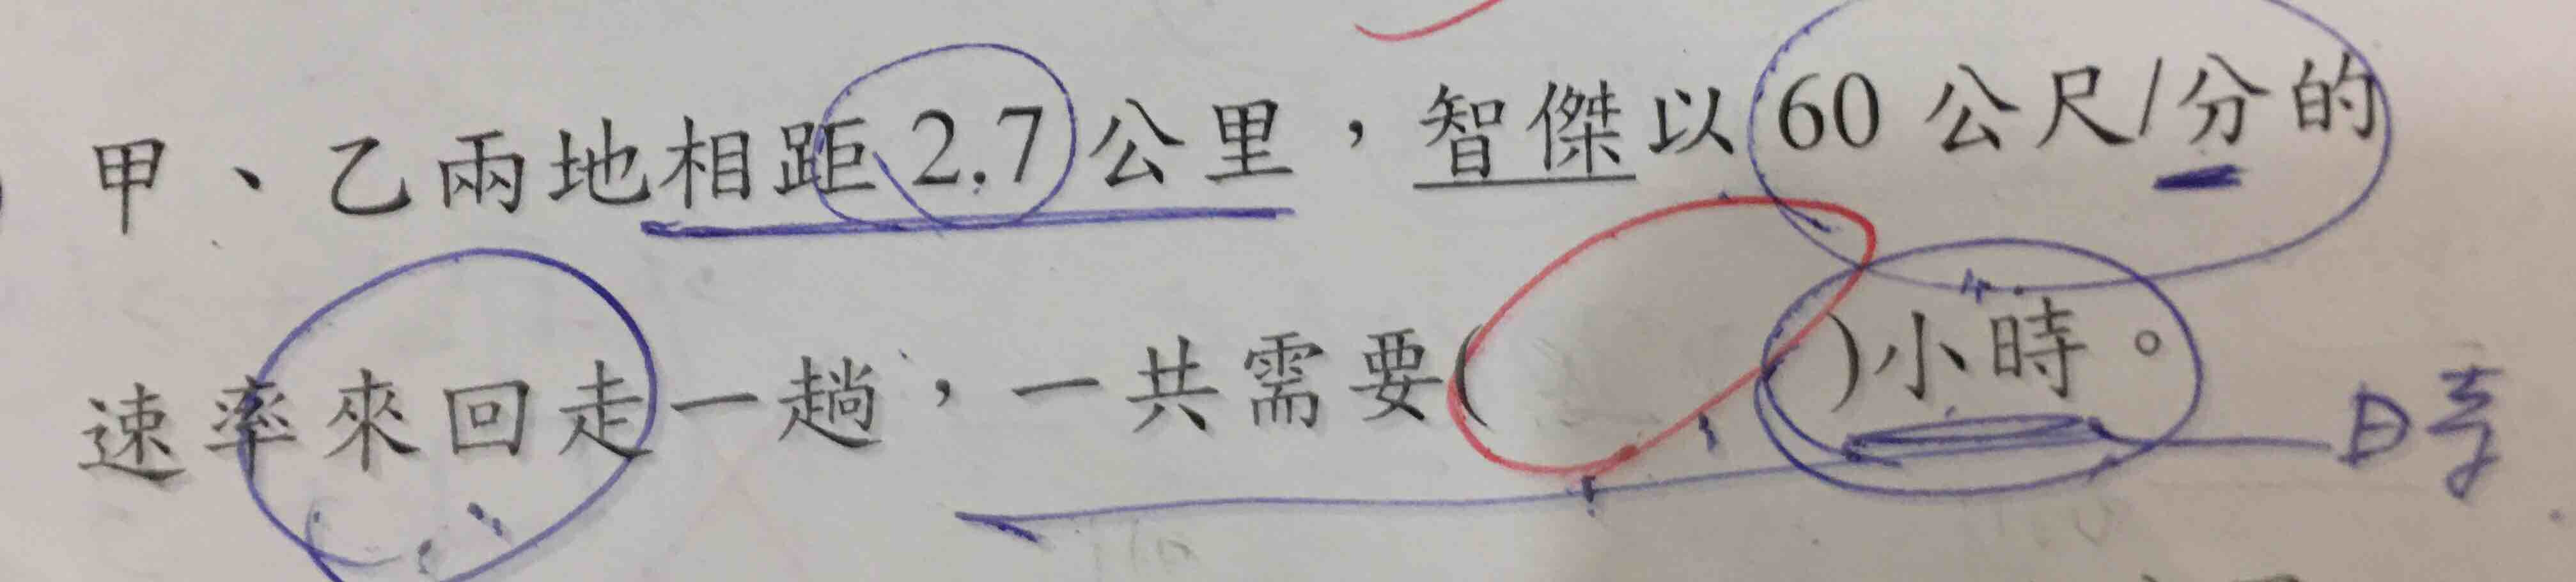 甲、乙兩地相距2.7公里，智傑以60公尺/分的
速率來回走一趟，一共需要(　　)小時。
時